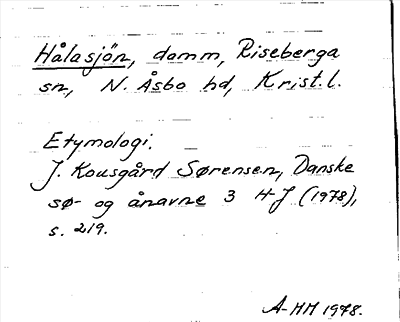 Hålasjön, damm, Riseberga
sn, N. Åsbo hd, Krist.l.
Etymologi.
J. Kousgård Sørensen, Danske
sø- og ånavne 3 H-J (1978),
s. 219.
A-MM 1978.